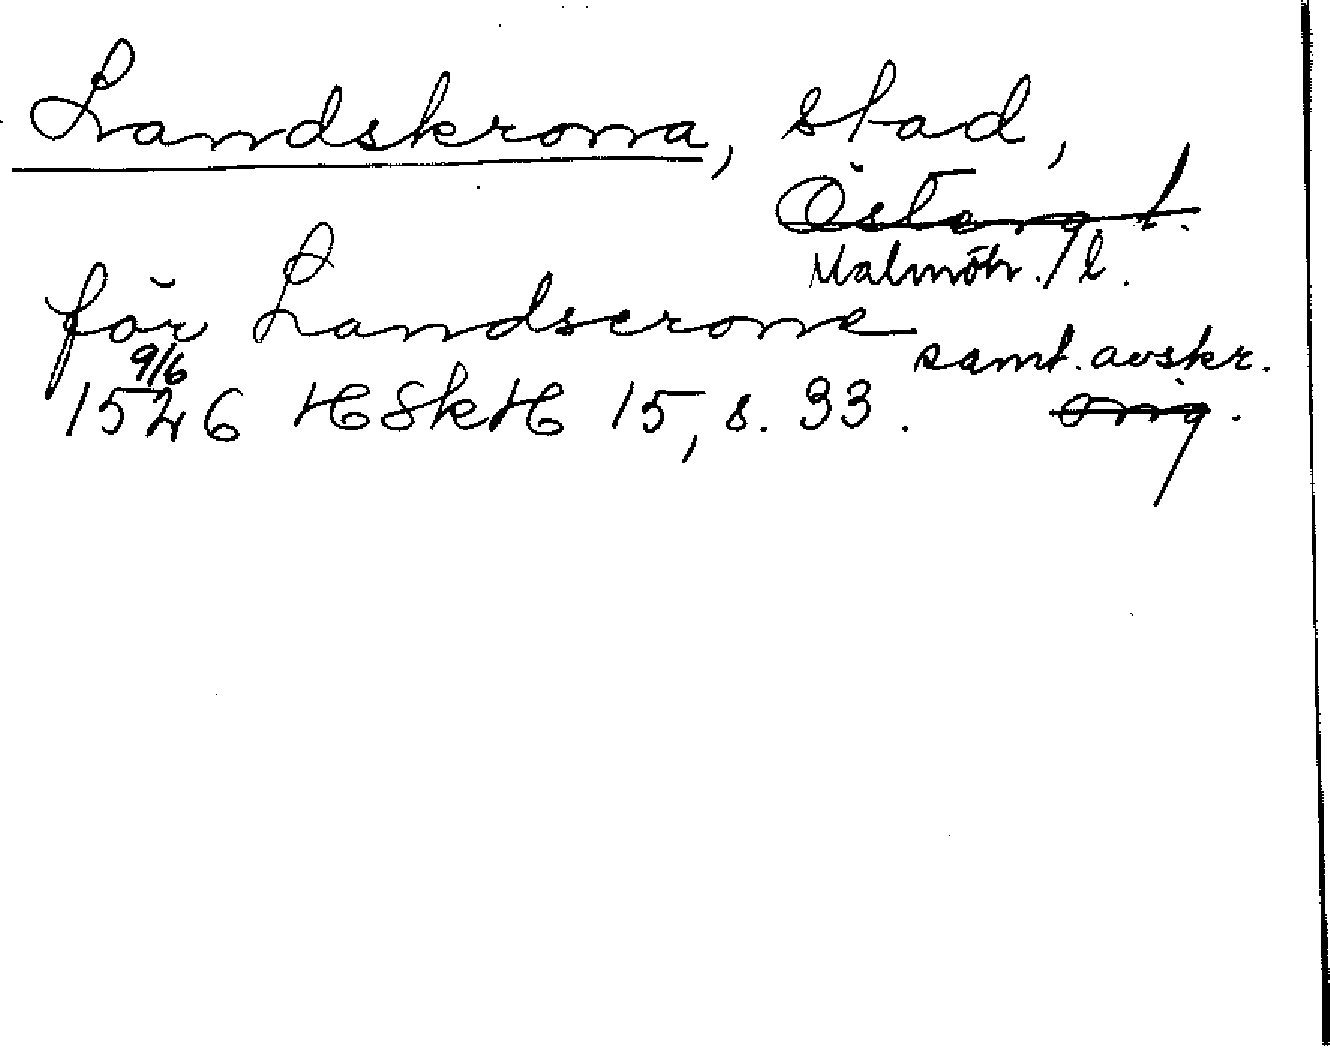 Landskrona, stad,
Österg. l.
Malmöh. l.
för Landscrone samt. avskr.
9/6
1526 HSkH 15, s. 33. orig.